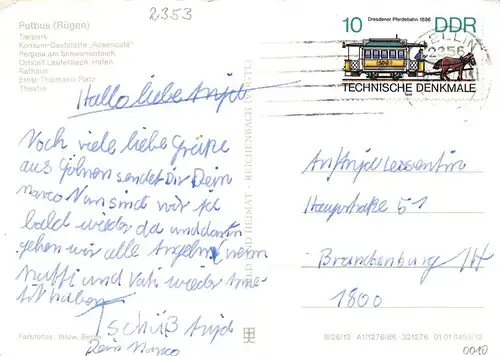 2353
Putbus (Rügen)
Tierpark
Konsum-Gaststätte „Rosencafé"
Pergola am Schwanenteich
Ortsteil Lauterbach, Hafen
Rathaus
Ernst-Thälmann-Platz
Theater
Hallo liebe Antje
Noch viele liebe Grüße
aus Göhren sendet Dir Dein
Marco Nun sind wir ja
bald wieder da und dann
gehen wir alle Angeln, wenn
Mutti und Vati wieder
haben
Tschüß Antje
Dein Marco
BILD UND HEIMAT REICHENBACH
10 Dresdener Pferdebahn 1886 DDR
TECHNISCHE DENKMALE
SELLIN
2356
An Antje
Hauptstraße 51
Brandenburg /H
1800
Farbfotos: Ihlow,
III/26/13 A1/1276/86 321276 01 01 0493
0010